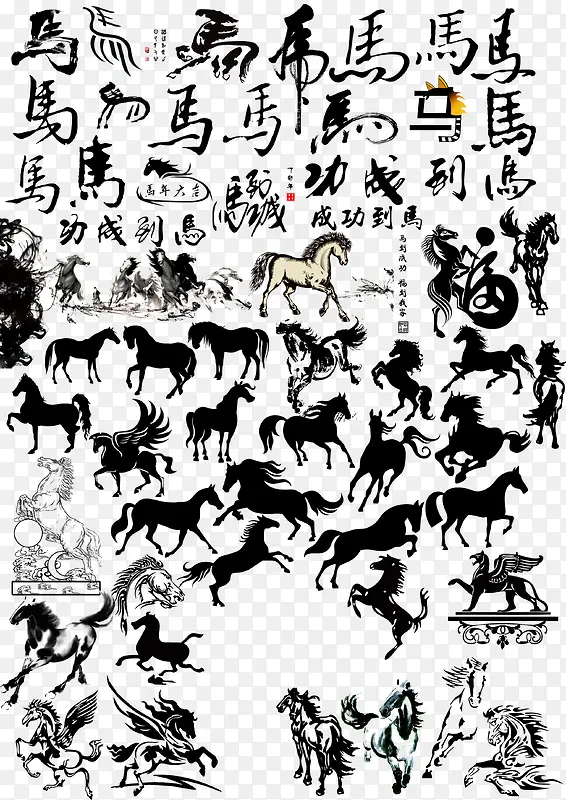 馬
馬
馬
馬
馬
馬
馬
馬
馬
馬
馬
馬
馬
馬
功成到馬
馬年大吉
马到成功
功成到馬
成功到馬
马到成功 福到我家
福